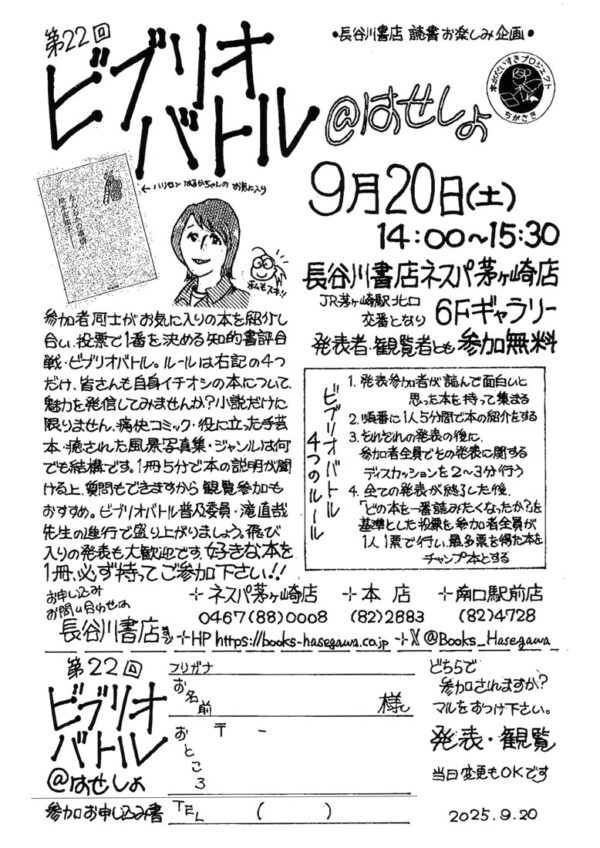 •長谷川書店 読書お楽しみ企画•
第22回
ビブリオ
バトル
@はせしょ
本がだいすきプロジェクト
ちがさき
←ハリセン はるかちゃんの お気に入り
ほんもスキ!!
9月20日(土)
14:00〜15:30
長谷川書店ネスパ茅ヶ崎店
JR茅ヶ崎駅北口
交番となり 6Fギャラリー
発表者・観覧者とも 参加無料
参加者同士がお気に入りの本を紹介し
合い、投票で1番を決める知的書評合
戦・ビブリオバトル。ルールは右記の4つ
だけ、皆さんも自身イチオシの本について、
魅力を発信してみませんか?小説だけに
限りません、痛快コミック・役に立った手芸
本・癒された風景写真集・ジャンルは何
でも結構です。1冊5分で本の説明が聞
ける上、質問もできますから 観覧参加も
おすすめ。ビブリオバトル普及委員・滝直哉
先生の進行で盛り上がりましょう。飛び
入りの発表も大歓迎です、好きな本を
1冊、必ず持ってご参加下さい!!
ビブリオバトル
4つのルール
1. 発表参加者が読んで面白いと
思った本を持って集まる
2. 順番に1人5分間で本の紹介をする
3. それぞれの発表の後に、
参加者全員でその発表に関する
ディスカッションを2〜3分行う
4. 全ての発表が終了した後、
「どの本を一番読みたくなったか?」を
基準とした投票を参加者全員が
1人1票で行い、最多票を得た本を
チャンプ本とする
お申し込み
お問い合わせは
長谷川書店まで
⊹ネスパ茅ヶ崎店 ⊹本 店 ⊹南口駅前店
0467(88)0008 (82)2883 (82)4728
⊹HP https://books-hasegawa.co.jp ⊹X @Books_Hasegawa
第22回
ビブリオ
バトル
@はせしょ
参加お申し込み書
フリガナ
お名前 様
おところ 〒 -
TEL ( )
どちらで
参加されますか?
マルをおつけ下さい。
発表・観覧
当日変更もOKです
2025.9.20